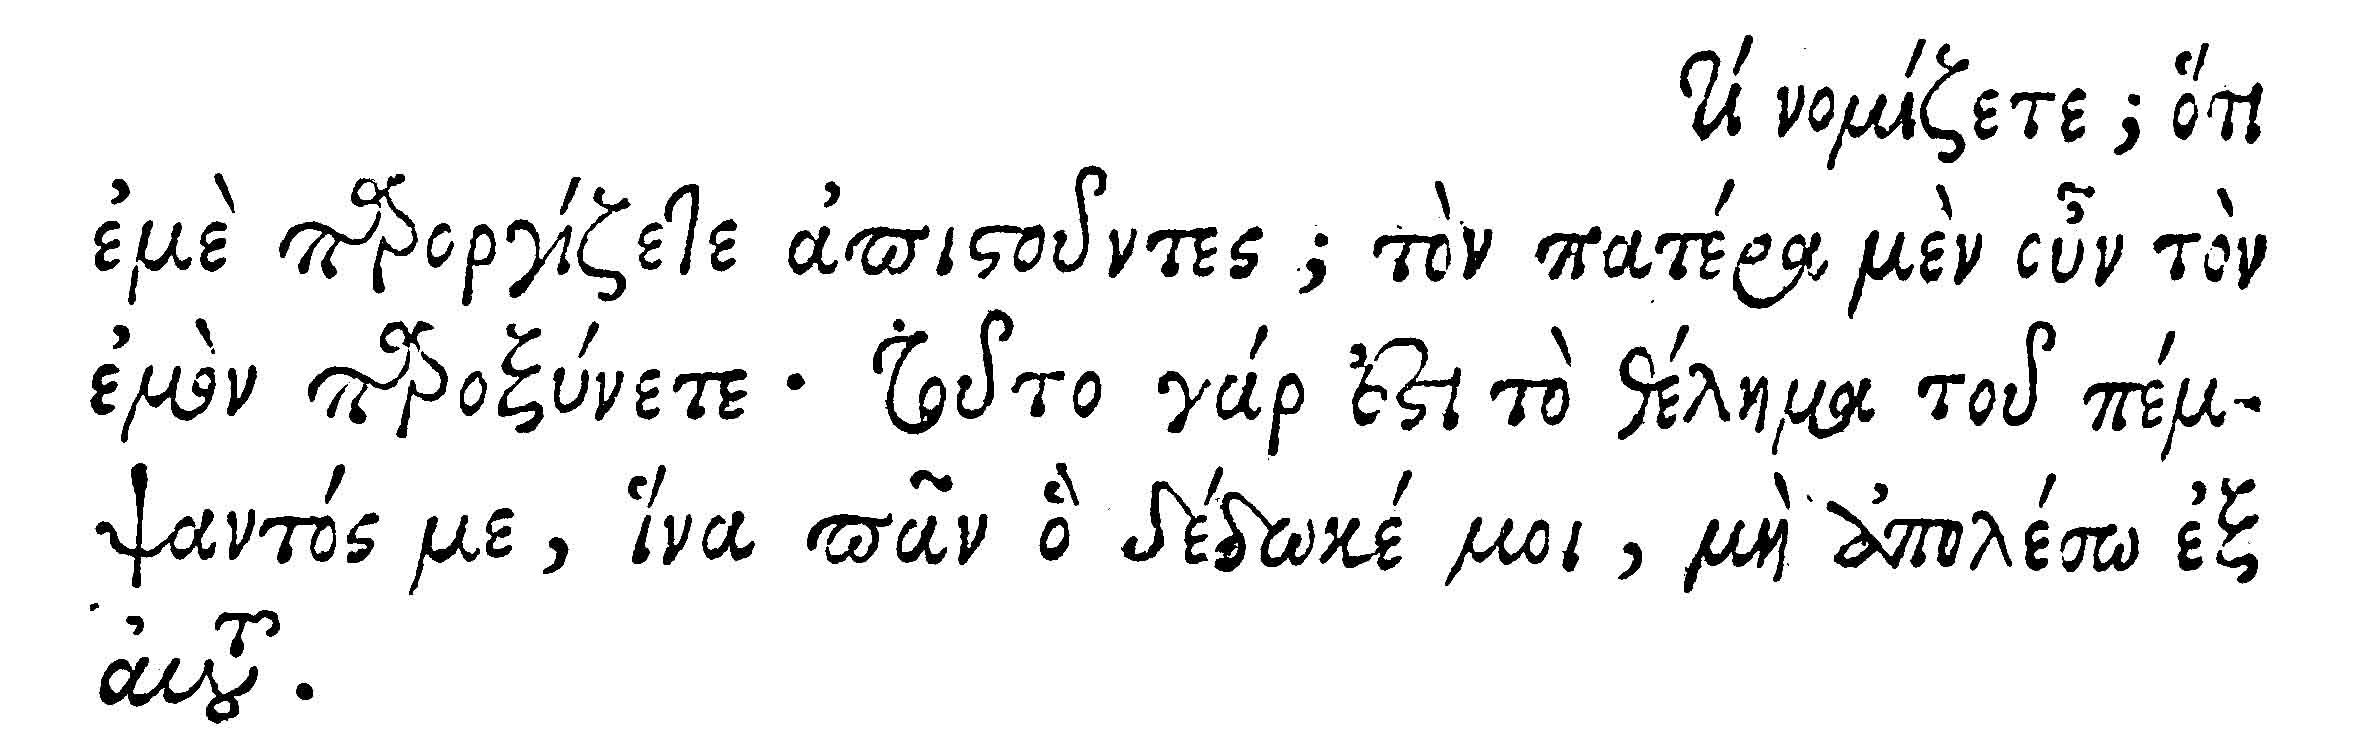 τί νομίζετε; ὅτι
ἐμὲ παροργίζετε ἀπιστοῦντες; τὸν πατέρα μὲν οὖν τὸν
ἐμὸν παροξύνετε. τοῦτο γάρ ἐστι τὸ θέλημα τοῦ πέμ-
ψαντός με, ἵνα πᾶν ὃ δέδωκέ μοι, μὴ ἀπολέσω ἐξ
αὐτοῦ.